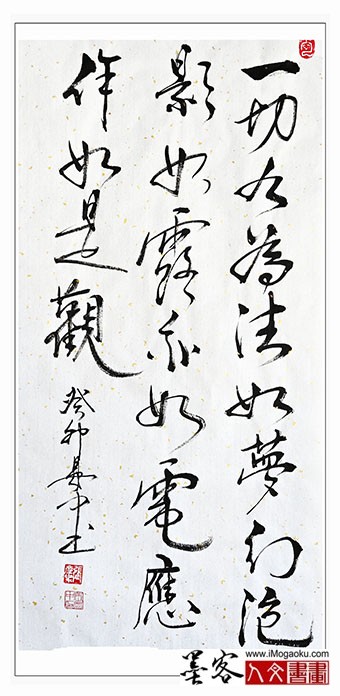 一切有為法如夢幻泡
影如露亦如電應
作如是觀
癸卯
書
墨客
www.iMogaoku.com
人文書畫